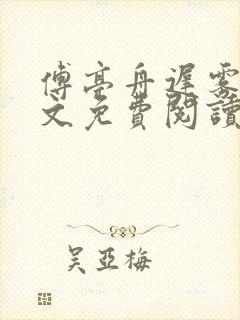 傅亭舟遲霧
文免費閱讀
吳亞梅